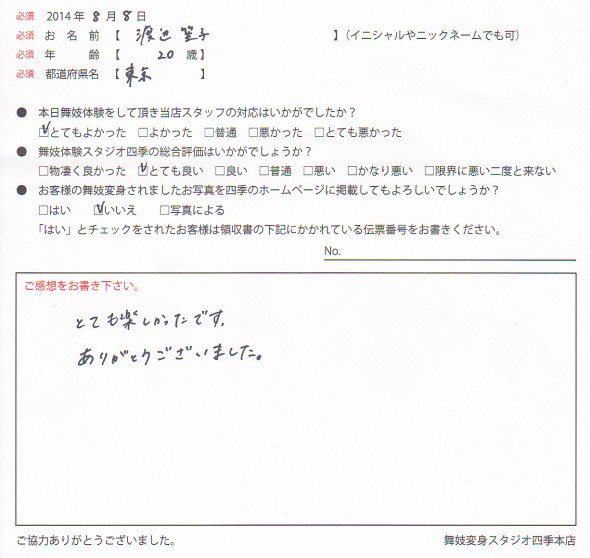 必須 2014年 8月 8日
必須 お名前【 渡辺 笙子 】(イニシャルやニックネームでも可)
必須 年齢【 20歳】
必須 都道府県名【東京 】
● 本日舞妓体験をして頂き当店スタッフの対応はいかがでしたか?
☑とてもよかった □よかった □普通 □悪かった □とても悪かった
● 舞妓体験スタジオ四季の総合評価はいかがでしょうか?
□物凄く良かった ☑とても良い □良い □普通 □悪い □かなり悪い □限界に悪い二度と来ない
● お客様の舞妓変身されましたお写真を四季のホームページに掲載してもよろしいでしょうか?
□はい ☑いいえ □写真による
「はい」とチェックをされたお客様は領収書の下記にかかれている伝票番号をお書きください。
No.
ご感想をお書き下さい。
とても楽しかったです.
ありがとうございました。
ご協力ありがとうございました。 舞妓変身スタジオ四季本店